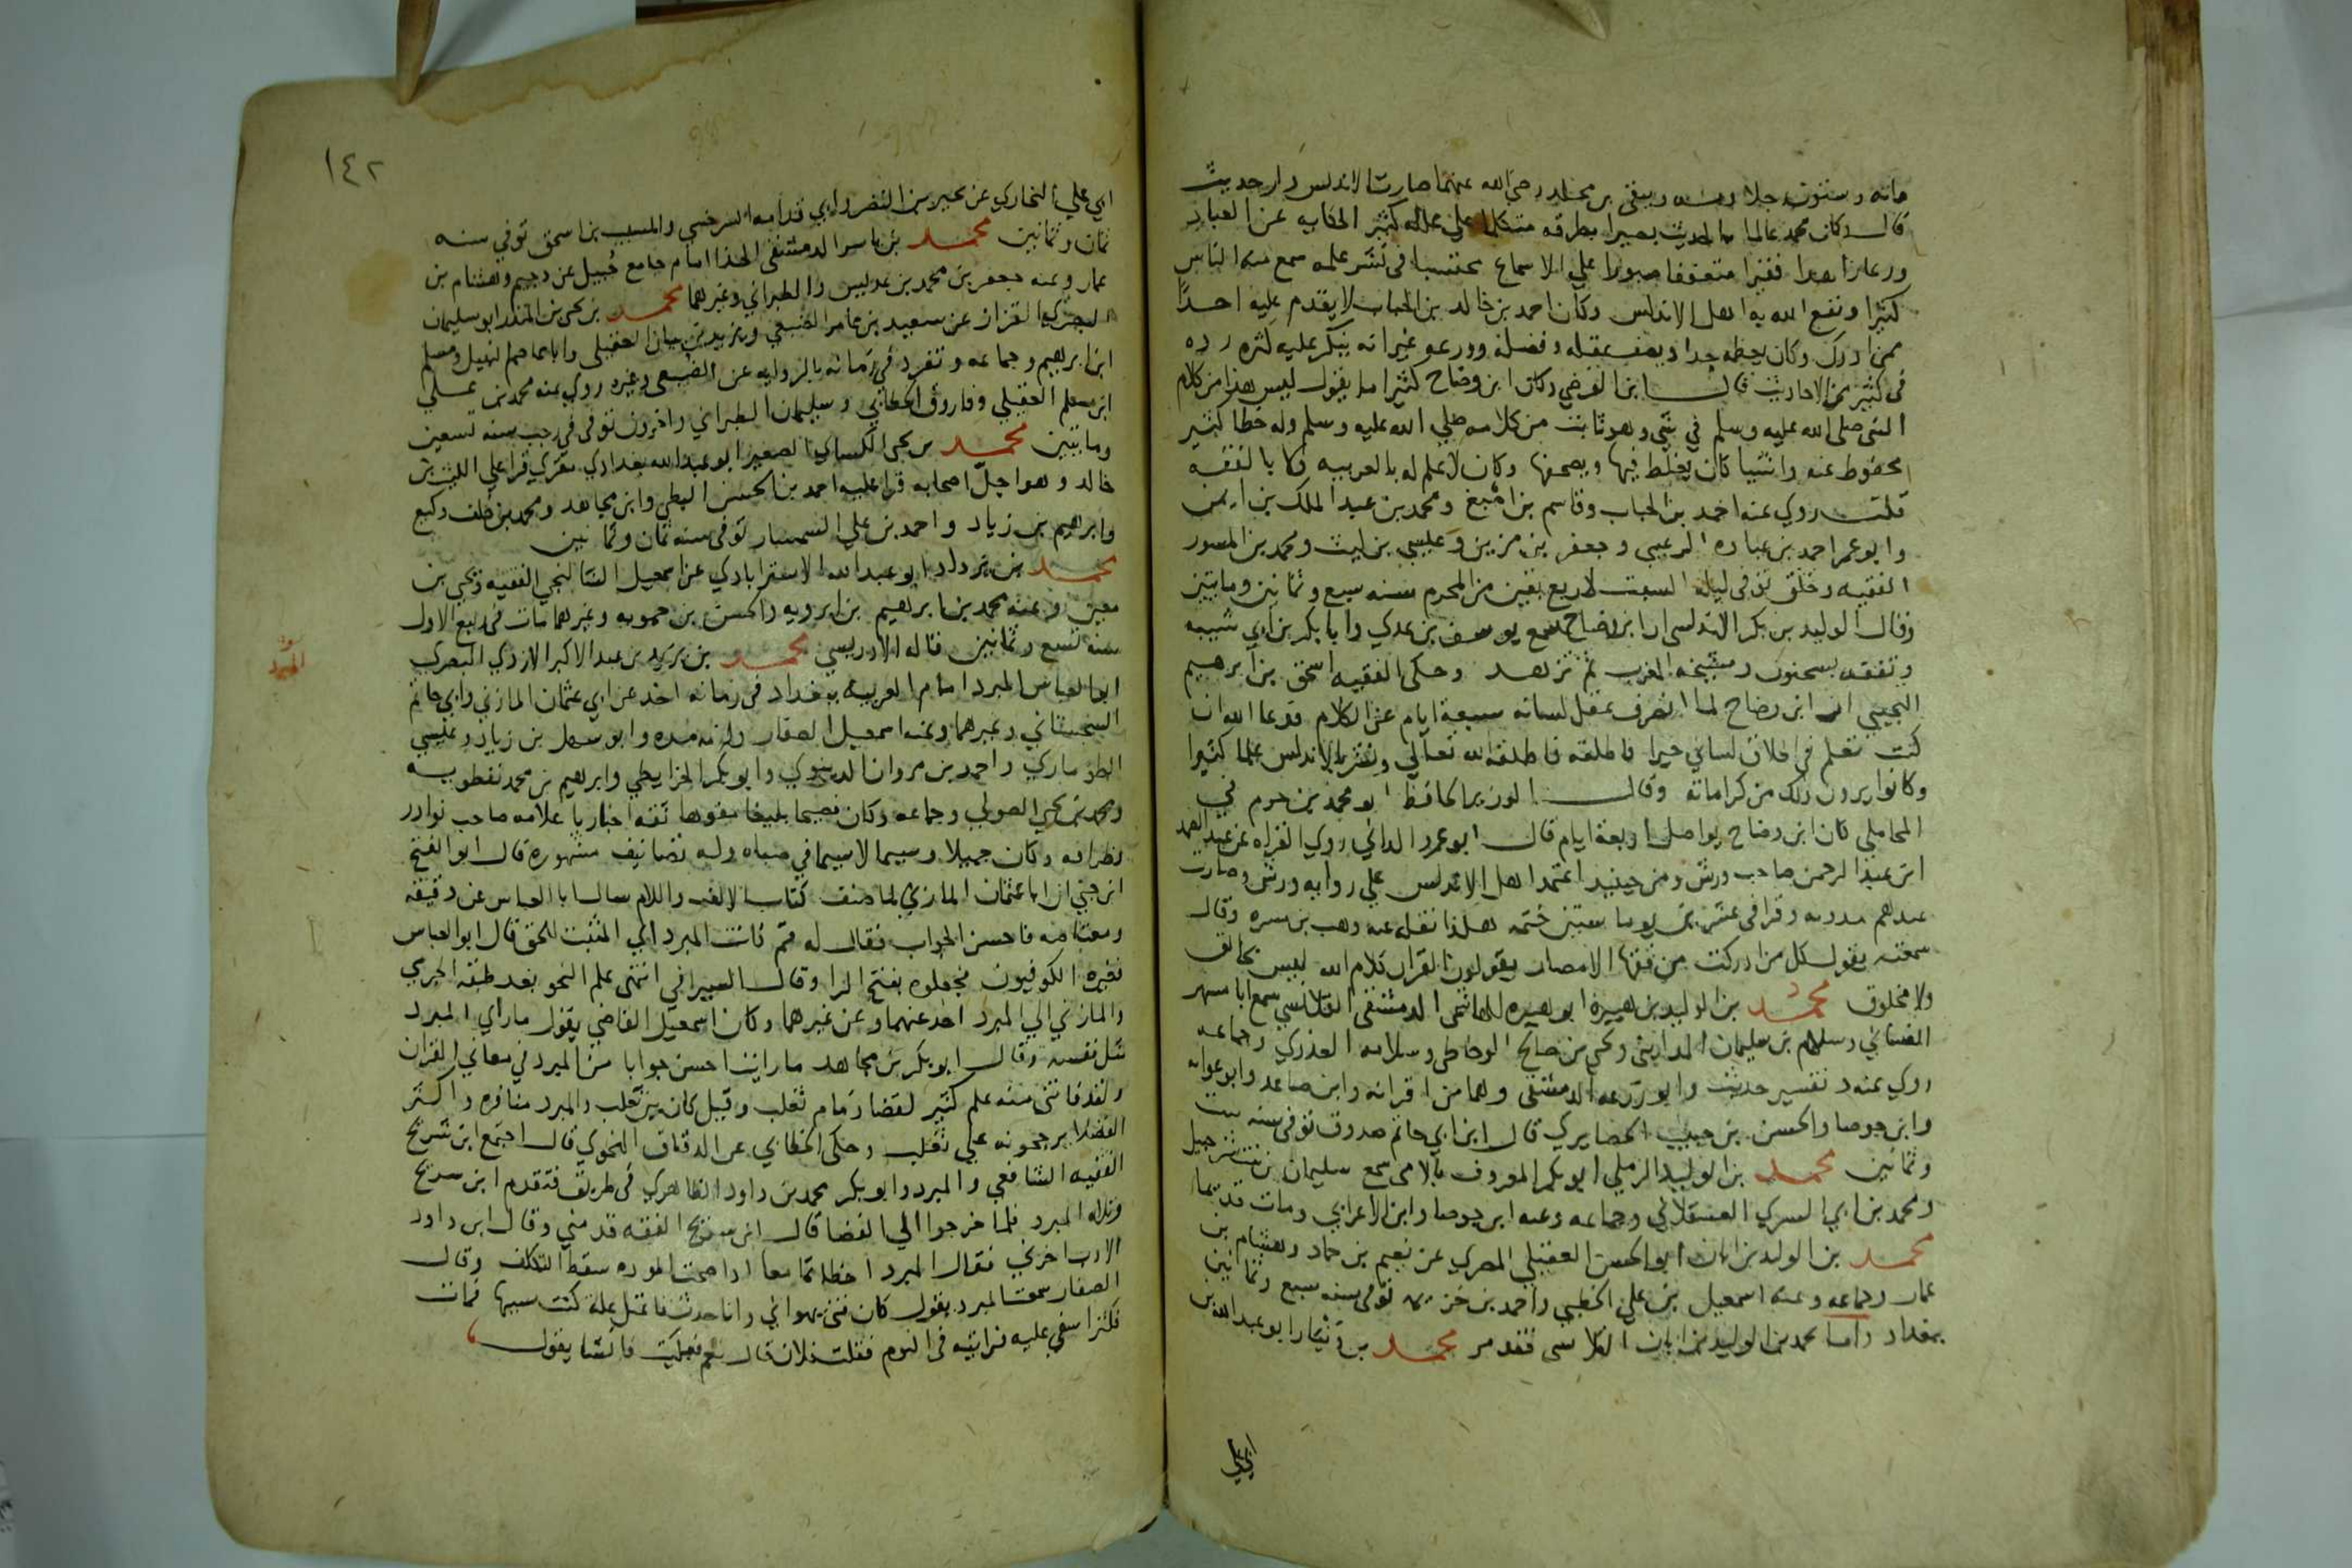 مائه وستون رجلا وبه وببقى بن مخلد رضي الله عنهما صارت الاندلس دار حديث
قال وكان محمد عالما بالحديث بصيرا بطرقه متكلما على علله كثير الحكايه عن العباد
ورعا زاهدا فقيرا متعففا صبورا على الاسماع محتسبا في نشر علمه سمع منه الناس
كثيرا ونفع الله به اهل الاندلس وكان احمد بن خالد بن الحباب لا يقدم عليه احدا
ممن ادرك وكان يعظمه جدا ويصف عقله وفضله وورعه غير انه ينكر عليه كثره رده
في كثير من الاحاديث قال ابن الفرضي وكان ابن وضاح كثيرا ما يقول ليس هذا من كلام
النبي صلى الله عليه وسلم في شي وهو ثابت من كلامه صلى الله عليه وسلم وله خطا كثير
محفوظ عنه واشيا كان يغلط فيها ويصحفها وكان لا علم له بالعربيه ولا بالفقه
قلت روى عنه احمد بن الحباب وقاسم بن اصبغ ومحمد بن عبد الملك بن ايمن
وابو عمر احمد بن عباده الرعيني وجعفر بن مزين وعيسى بن ليث ومحمد بن المسور
الفقيه وخلق توفي ليله السبت لاربع بقين من المحرم سنه سبع وثمانين ومايتين
وقال الوليد بن بكر الاندلسي ان ابن وضاح سمع يوسف بن عدي وابا بكر بن ابي شيبه
وتفقه بسحنون ومشيخه المغرب ثم تزهد وحكى الفقيه اسحق بن ابرهيم
التجيبي ان ابن وضاح لما انصرف عقل لسانه سبعة ايام عن الكلام فدعا الله ان
كنت تعلم في اطلاق لساني خيرا فاطلقه فاطلقه الله تعالى ونشر بالاندلس علما كثيرا
وكانوا يرون ذلك من كراماته وقال الوزير الحافظ ابو محمد بن حزم في
المحلى كان ابن وضاح يواصل اربعة ايام قال ابو عمرو الداني روى القراه عن عبد الصمد
ابن عبد الرحمن صاحب ورش ومن حينيد اعتمد اهل الاندلس على روايه ورش وصارت
عندهم مدونه وقرا في عشرين يوما ستين ختمه هكذا نقله عنه وهب بن مسره وقال
سمعته يقول كل من ادركت من فقها الامصار يقولون القران كلام الله ليس بخالق
ولا مخلوق محمد بن الوليد بن هبيرة ابو هبيره الهاشمي الدمشقي القلانسي سمع ابا مسهر
الغساني وسلام بن سليمان المدايني ويحيى بن صالح الوحاظي وسلامه العذري وجماعه
روى عنه د تفسير حديث وابو زرعه الدمشقي وهما من اقرانه وابن صاعد وابو عوانه
وابن جوصا والحسن بن حبيب الحصايري قال ابن ابي حاتم صدوق توفي سنه ست
وثمانين محمد بن الوليد الرملي ابو بكر المعروف بالامي سمع سليمان بن بنت شرحبيل
ومحمد بن ابي السري العسقلاني وجماعه وعنه ابن جوصا وابن الاعرابي ومات قديما
محمد بن الوليد بن ابان ابو الحسن العقيلي المصري عن نعيم بن حماد وهشام بن
عمار وجماعه وعنه اسمعيل بن علي الخطبي واحمد بن خزيمه توفي سنه سبع وثمانين
ببغداد واما محمد بن الوليد بن ابان القلانسي فقد مر محمد بن زنجار ابو عبد الله بن
ابي علي البخاري عن بحير بن النضر وابي قدامه السرخسي والمسيب بن اسحق توفي سنه
ثمان وثمانين محمد بن ياسر الدمشقي الحذا امام جامع جبيل عن دحيم وهشام بن
عمار وعنه جعفر بن محمد بن عديس والطبراني وغيرهما محمد بن يحيى بن المنذر ابو سليمان
البصري القزاز عن سعيد بن عامر الضبعي ويزيد بن بيان العقيلي وابا عاصم النبيل ومسلم
ابن ابرهيم وجماعه وتفرد في زمانه بالروايه عن الضبعي وغيره روى عنه محمد بن علي
ابن مسلم العقيلي وفاروق الخطابي وسليمان الطبراني واخرون توفي في رجب سنه تسعين
ومايتين محمد بن يحيى الكسائي الصغير ابو عبد الله بغدادي مقري قرا على الليث بن
خالد وهو اجل اصحابه قرا عليه احمد بن الحسن البطي وابن مجاهد ومحمد بن خلف وكيع
وابرهيم بن زياد واحمد بن علي السمسار توفي سنه ثمان وثمانين
محمد بن يزداد ابو عبد الله الاستراباذي عن اسمعيل الشالنجي الفقيه ويحيى بن
معين وعنه محمد بن ابرهيم بن ابرويه والحسن بن حمويه وغيرهما مات في ربيع الاول
سنه تسع وثمانين قاله الادريسي محمد بن يزيد بن عبد الاكبر الازدي البصري
المبرد
ابو العباس المبرد امام العربيه ببغداد في زمانه اخذ عن ابي عثمان المازني وابي حاتم
السجستاني وغيرهما وعنه اسمعيل الصفار ولزمه مده وابو سهل بن زياد وعيسى
الطوماري واحمد بن مروان الدينوري وابو بكر الخرايطي وابرهيم بن محمد نفطويه
ومحمد بن يحيى الصولي وجماعه وكان فصيحا بليغا مفوها ثقه اخباريا علامه صاحب نوادر
وظرافه وكان جميلا وسيما لا سيما في صباه وله تصانيف مشهورة قال ابو الفتح
ابن جني ان ابا عثمان المازني لما صنف كتاب الالف واللام سال ابا العباس عن دقيقه
ومعتاصه فاحسن الجواب فقال له قم فانت المبرد اي المثبت للحق قال ابو العباس
فغيره الكوفيون فجعلوه بفتح الرا وقال السيرافي انتهى علم النحو بعد طبقه الجرمي
والمازني الى المبرد اخذ عنهما وعن غيرهما وكان اسمعيل القاضي يقول ما راى المبرد
مثل نفسه وقال ابو بكر بن مجاهد ما رايت احسن جوابا من المبرد في معاني القران
ولقد فاتني منه علم كثير لقضا ذمام ثعلب وقيل كان بين ثعلب والمبرد منافره واكثر
الفضلا يرجحونه على ثعلب وحكى الخطابي عن الدقاق النحوي قال اجتمع ابن شريح
الفقيه الشافعي والمبرد وابو بكر محمد بن داود الظاهري في طريق فتقدم ابن سريح
وتلاه المبرد فلما خرجوا الى الفضا قال ابن سريج الفقه قدمني وقال ابن داود
الادب اخرني فقال المبرد اخطاتما معا اذا صحت الموده سقط التكلف وقال
الصفار سمعت المبرد يقول كان فتى يهواني وانا حدث فاعتل عله كنت سببها فمات
فكثر اسفي عليه فرايته في النوم فقلت فلان قال نعم فبكيت فانشا يقول
١٤٢